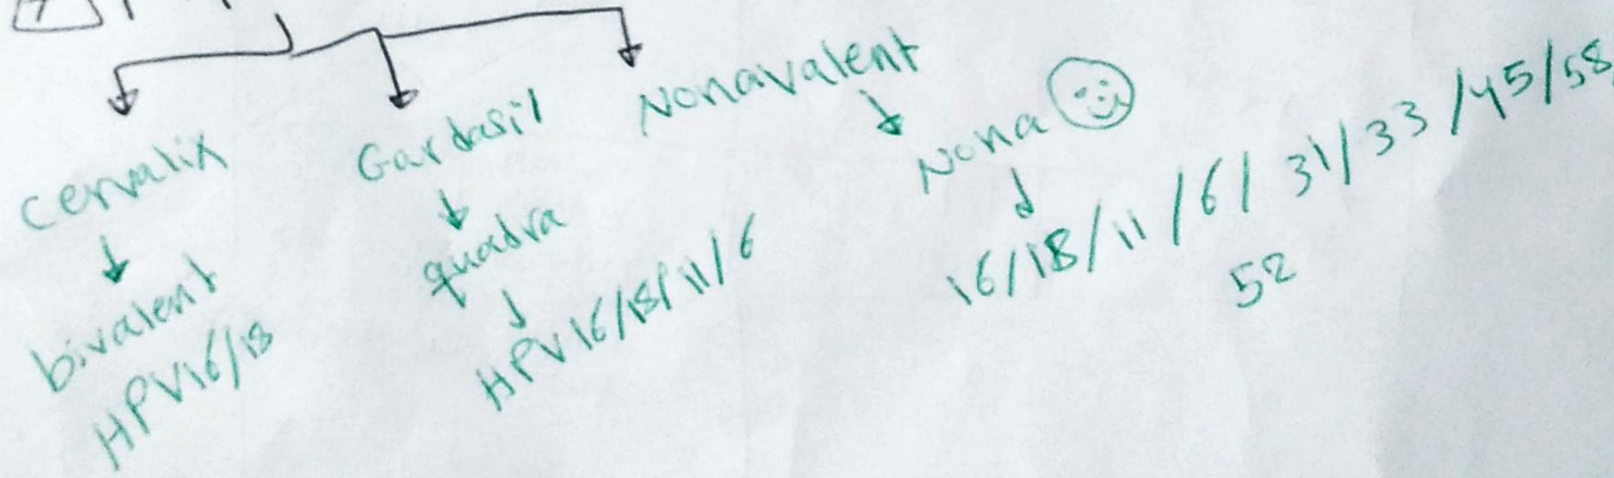 Cervalix
bivalent
HPV16/18
Gardasil
quadra
HPV16/18/11/6
Nonavalent
Nona
16/18/11/6/31/33/45/58
52